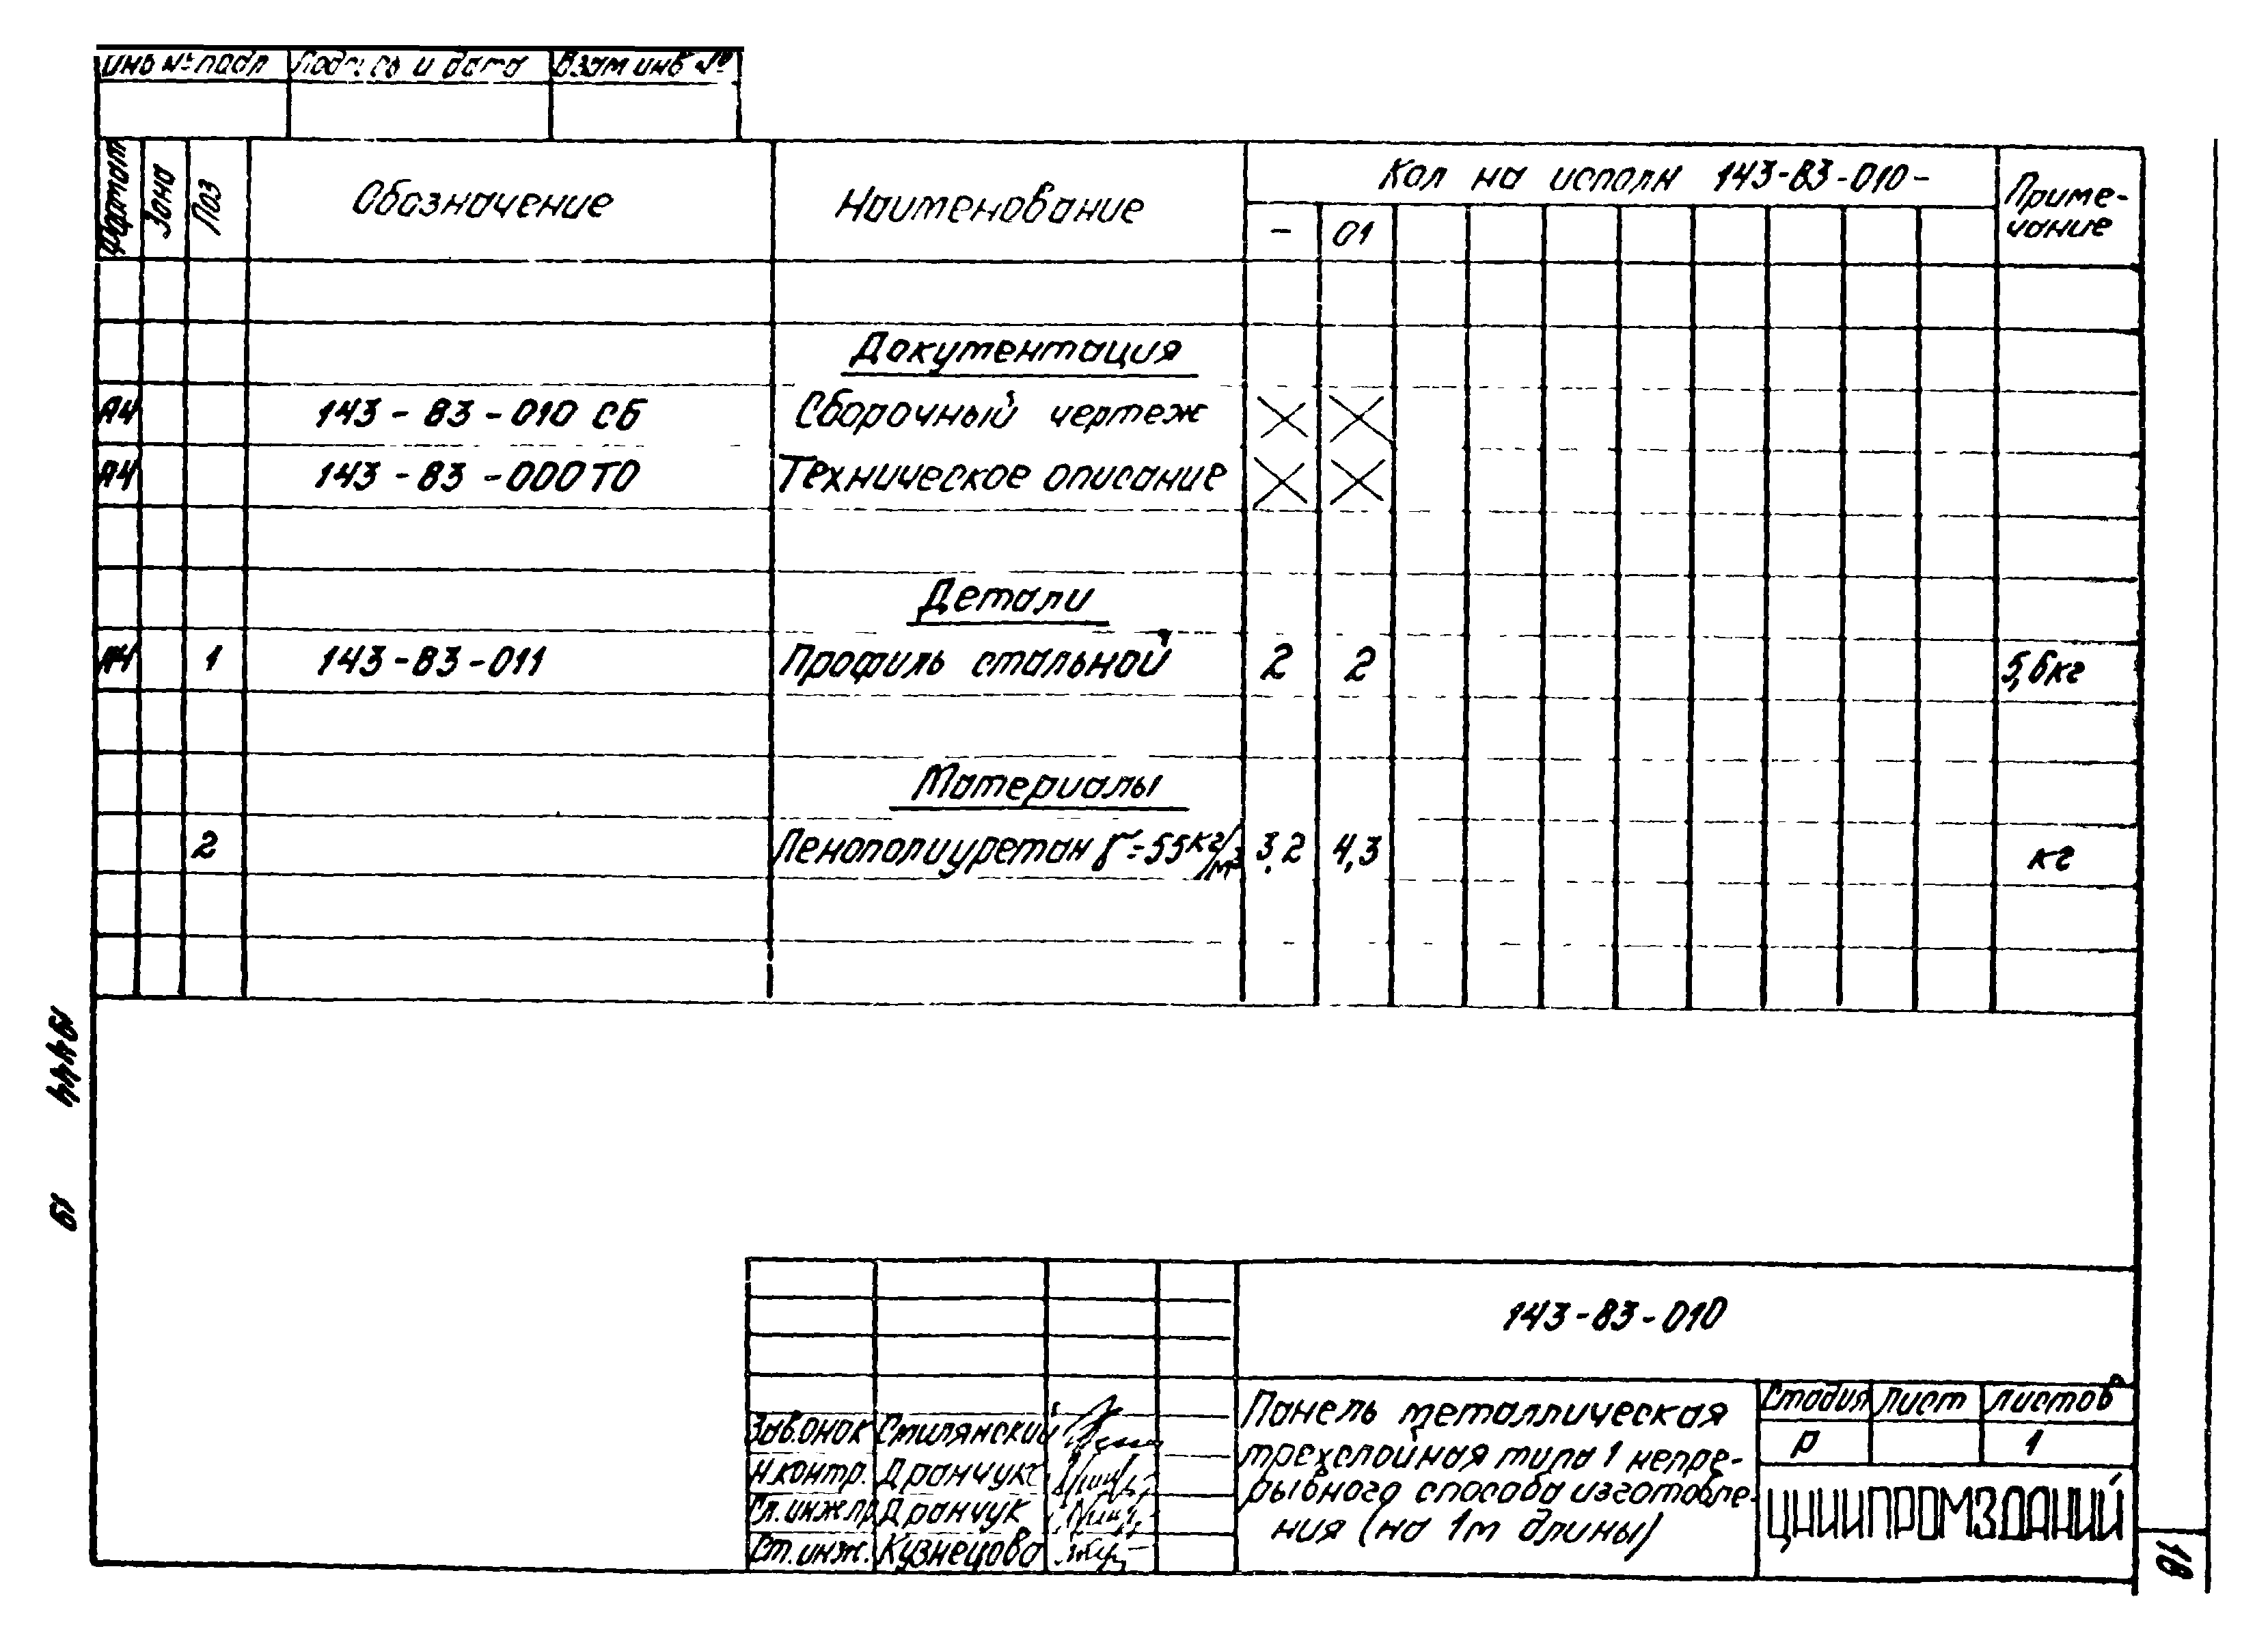 Инв № подл Подпись и дата Взам инв №
Формат Зона Поз Обозначение Наименование Кол на исполн 143-83-010- Приме-
чание
- 01
Документация
А4 143-83-010 СБ Сборочный чертеж
А4 143-83-000ТО Техническое описание
Детали
А4 1 143-83-011 Профиль стальной 2 2 5,6кг
Материалы
2 Пенополиуретан γ=55кг/м3 3,2 4,3 кг
19444
19
143-83-010
Панель металлическая
трехслойная типа 1 непре-
рывного способа изготовле-
ния (на 1м длины)
Стадия Лист Листов
Р 1
ЦНИИПРОМЗДАНИЙ
Зав.ОНОК Смилянский
Н.контр. Дранчук
Гл.инж.пр Дранчук
Ст.инж. Кузнецова
18